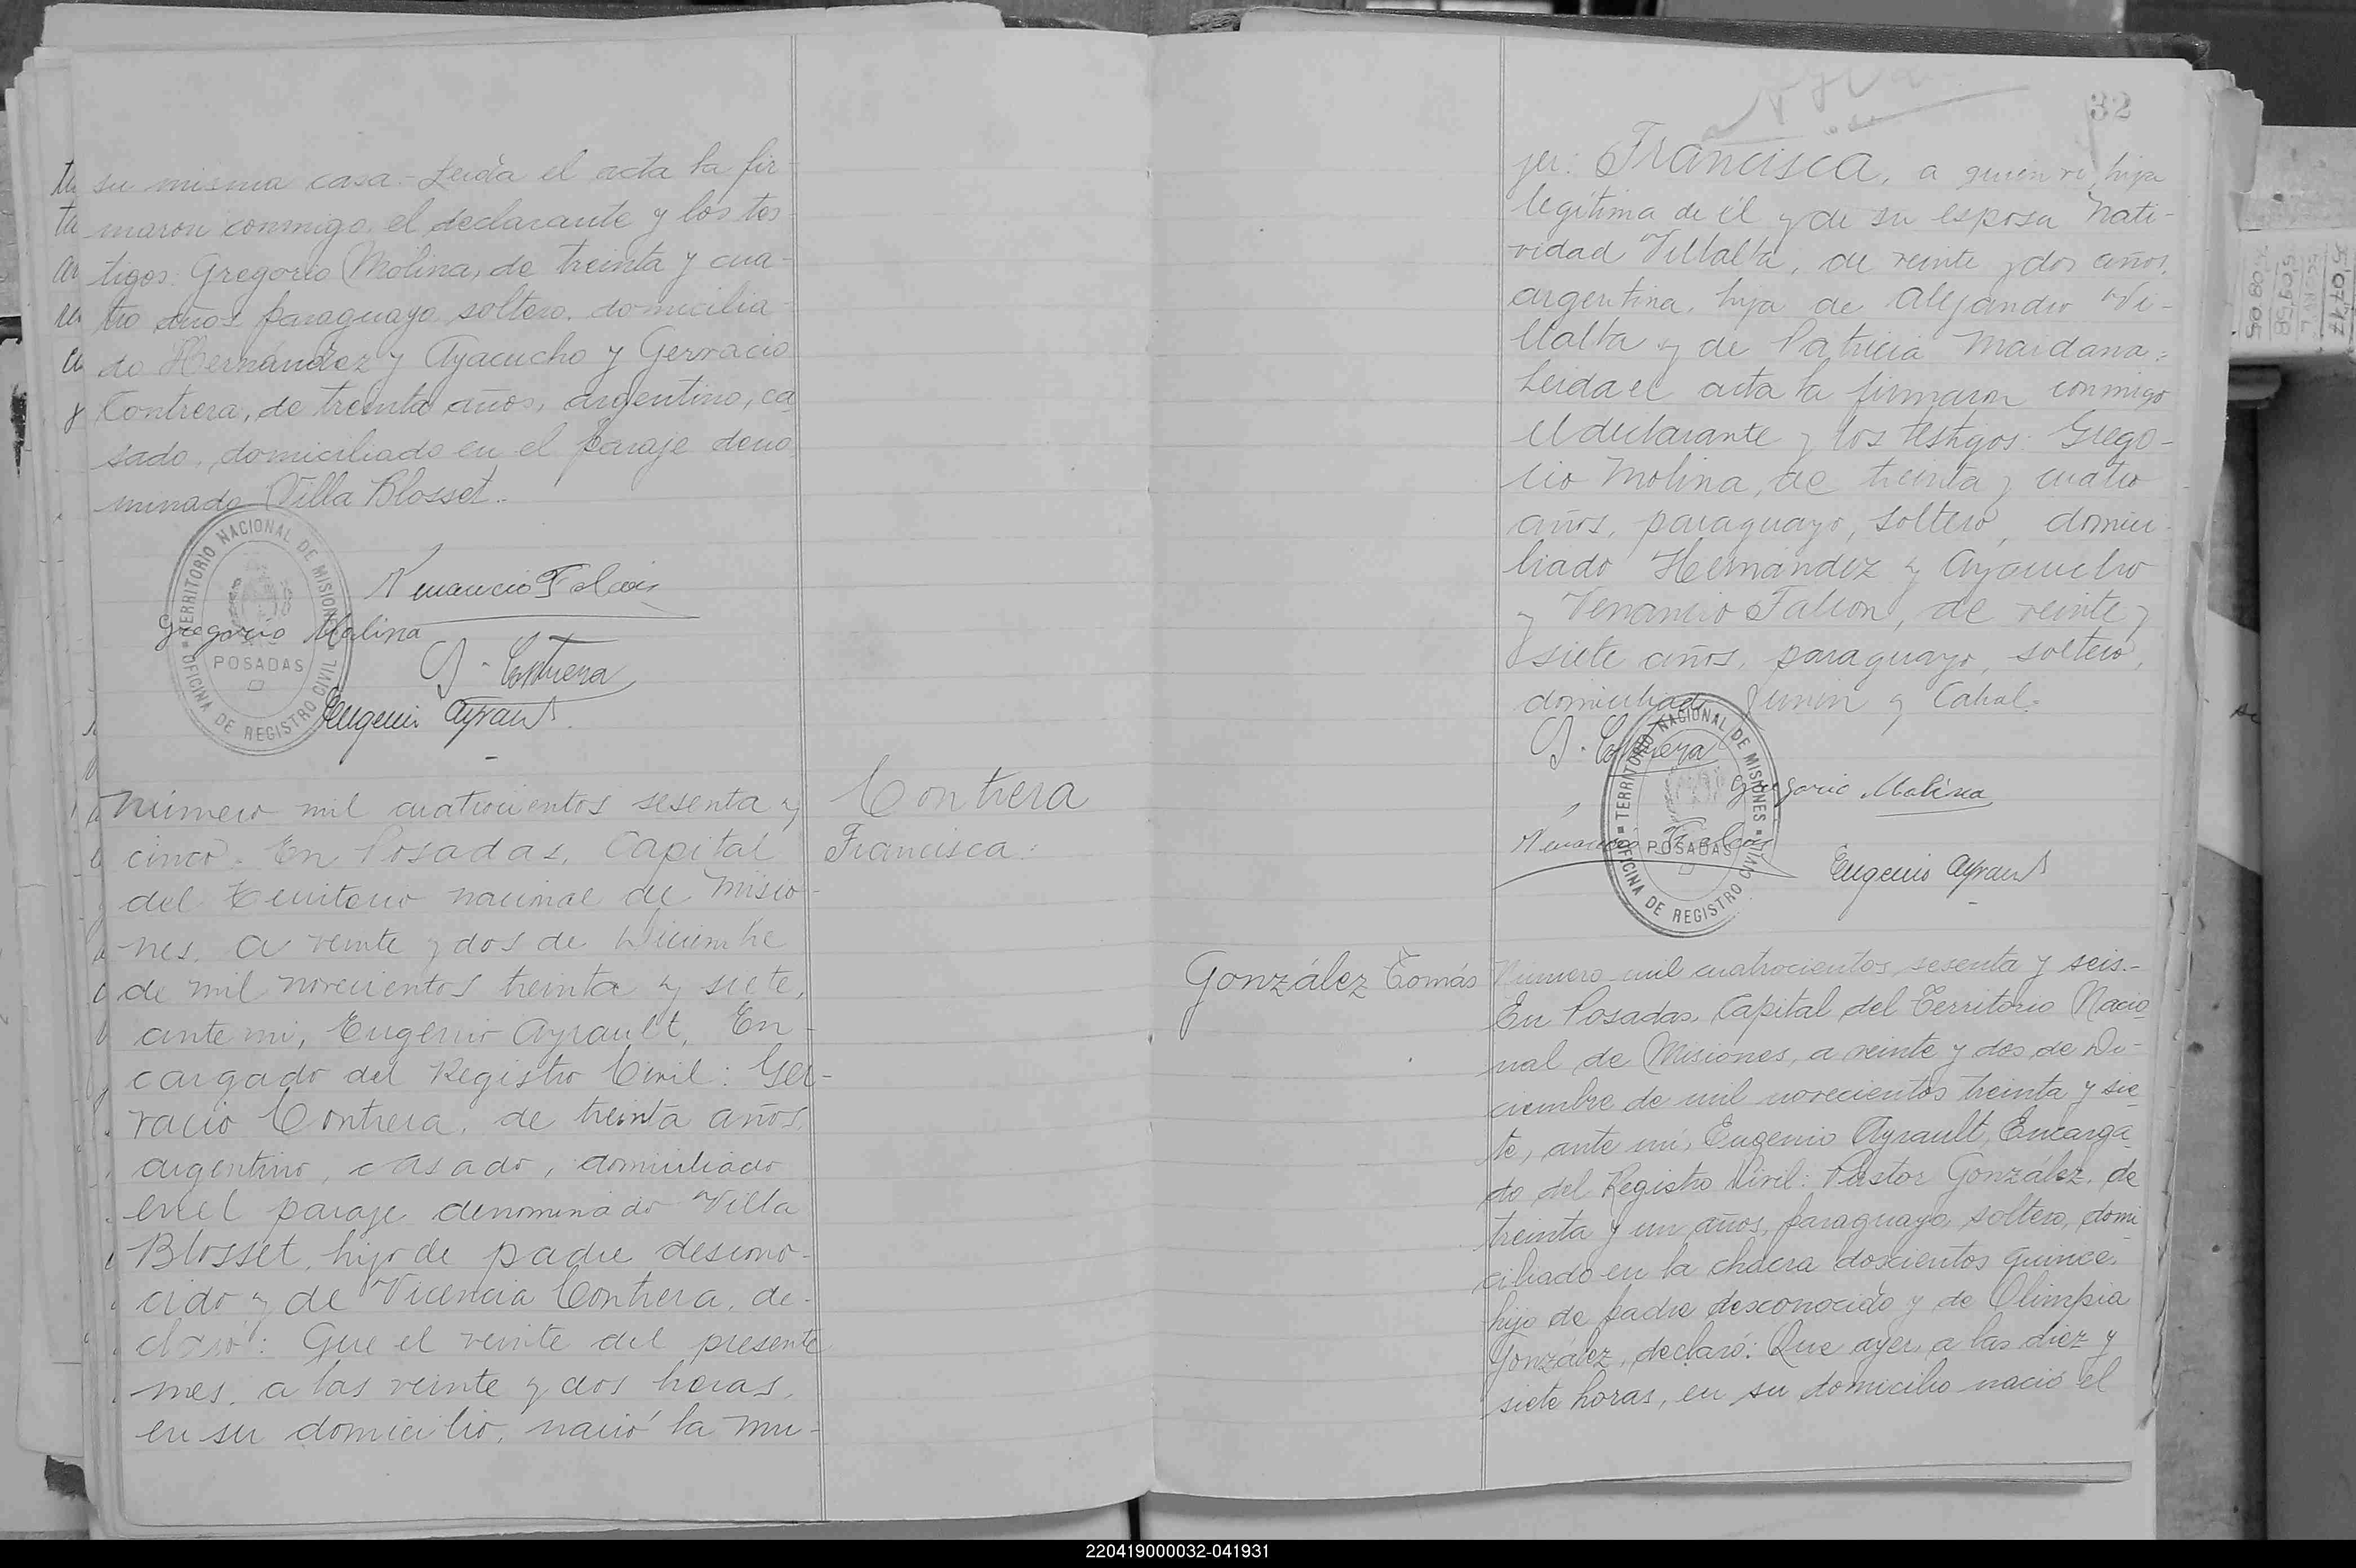 su misma casa.- Leída el acta la fir-
maron conmigo el declarante y los tes-
tigos: Gregorio Molina, de treinta y cua-
tro años, paraguayo, soltero, domicilia-
do Hernández y Ayacucho y Gervacio
Contrera, de treinta años, argentino, ca-
sado, domiciliado en el paraje deno-
minado Villa Blosset.-
TERRITORIO NACIONAL DE MISIONES
OFICINA DE REGISTRO CIVIL
POSADAS
Gregorio Molina
G. Contrera
Eugenio Ayrault
Número mil cuatrocientos sesenta y
cinco. En Posadas, Capital
del Territorio nacional de Misio-
nes, a veinte y dos de Diciembre
de mil novecientos treinta y siete,
ante mi, Eugenio Ayrault, En-
cargado del Registro Civil: Ger-
vacio Contrera, de treinta años,
argentino, casado, domiciliado
en el paraje denominado Villa
Blosset, hijo de padre descono-
cido y de Vicencia Contrera, de-
claró: Que el veinte del presente
mes, a las veinte y dos horas,
en su domicilio, nació la mu-
Contrera
Francisca:
32
jer: Francisca, a quien vi, hija
legítima de él y de su esposa Nati-
vidad Villalba, de veinte y dos años,
argentina, hija de Alejandro Vi-
llalba y de Patricia Maidana.=
Leida el acta la firmaron conmigo
el declarante y los testigos: Grego-
rio Molina, de treinta y cuatro
años, paraguayo, soltero, domici-
liado Hernández y Ayacucho
y Venancio Falcon, de veinte y
siete años, paraguayo, soltero,
domiciliado Junin y Cabal.
G. Contrera
TERRITORIO NACIONAL DE MISIONES
OFICINA DE REGISTRO CIVIL
POSADAS
Gregorio Molina
Eugenio Ayrault
González Tomás
Número mil cuatrocientos sesenta y seis.-
En Posadas, Capital del Territorio Nacio-
nal de Misiones, a veinte y dos de Di-
ciembre de mil novecientos treinta y sie-
te, ante mí, Eugenio Ayrault, Encarga-
do del Registro Civil: Pastor González, de
treinta y un años, paraguayo, soltero, domi-
ciliado en la chacra doscientos quince,
hijo de padre desconocido y de Olimpia
González, declaró: Que ayer, a las diez y
siete horas, en su domicilio nació el
220419000032-041931